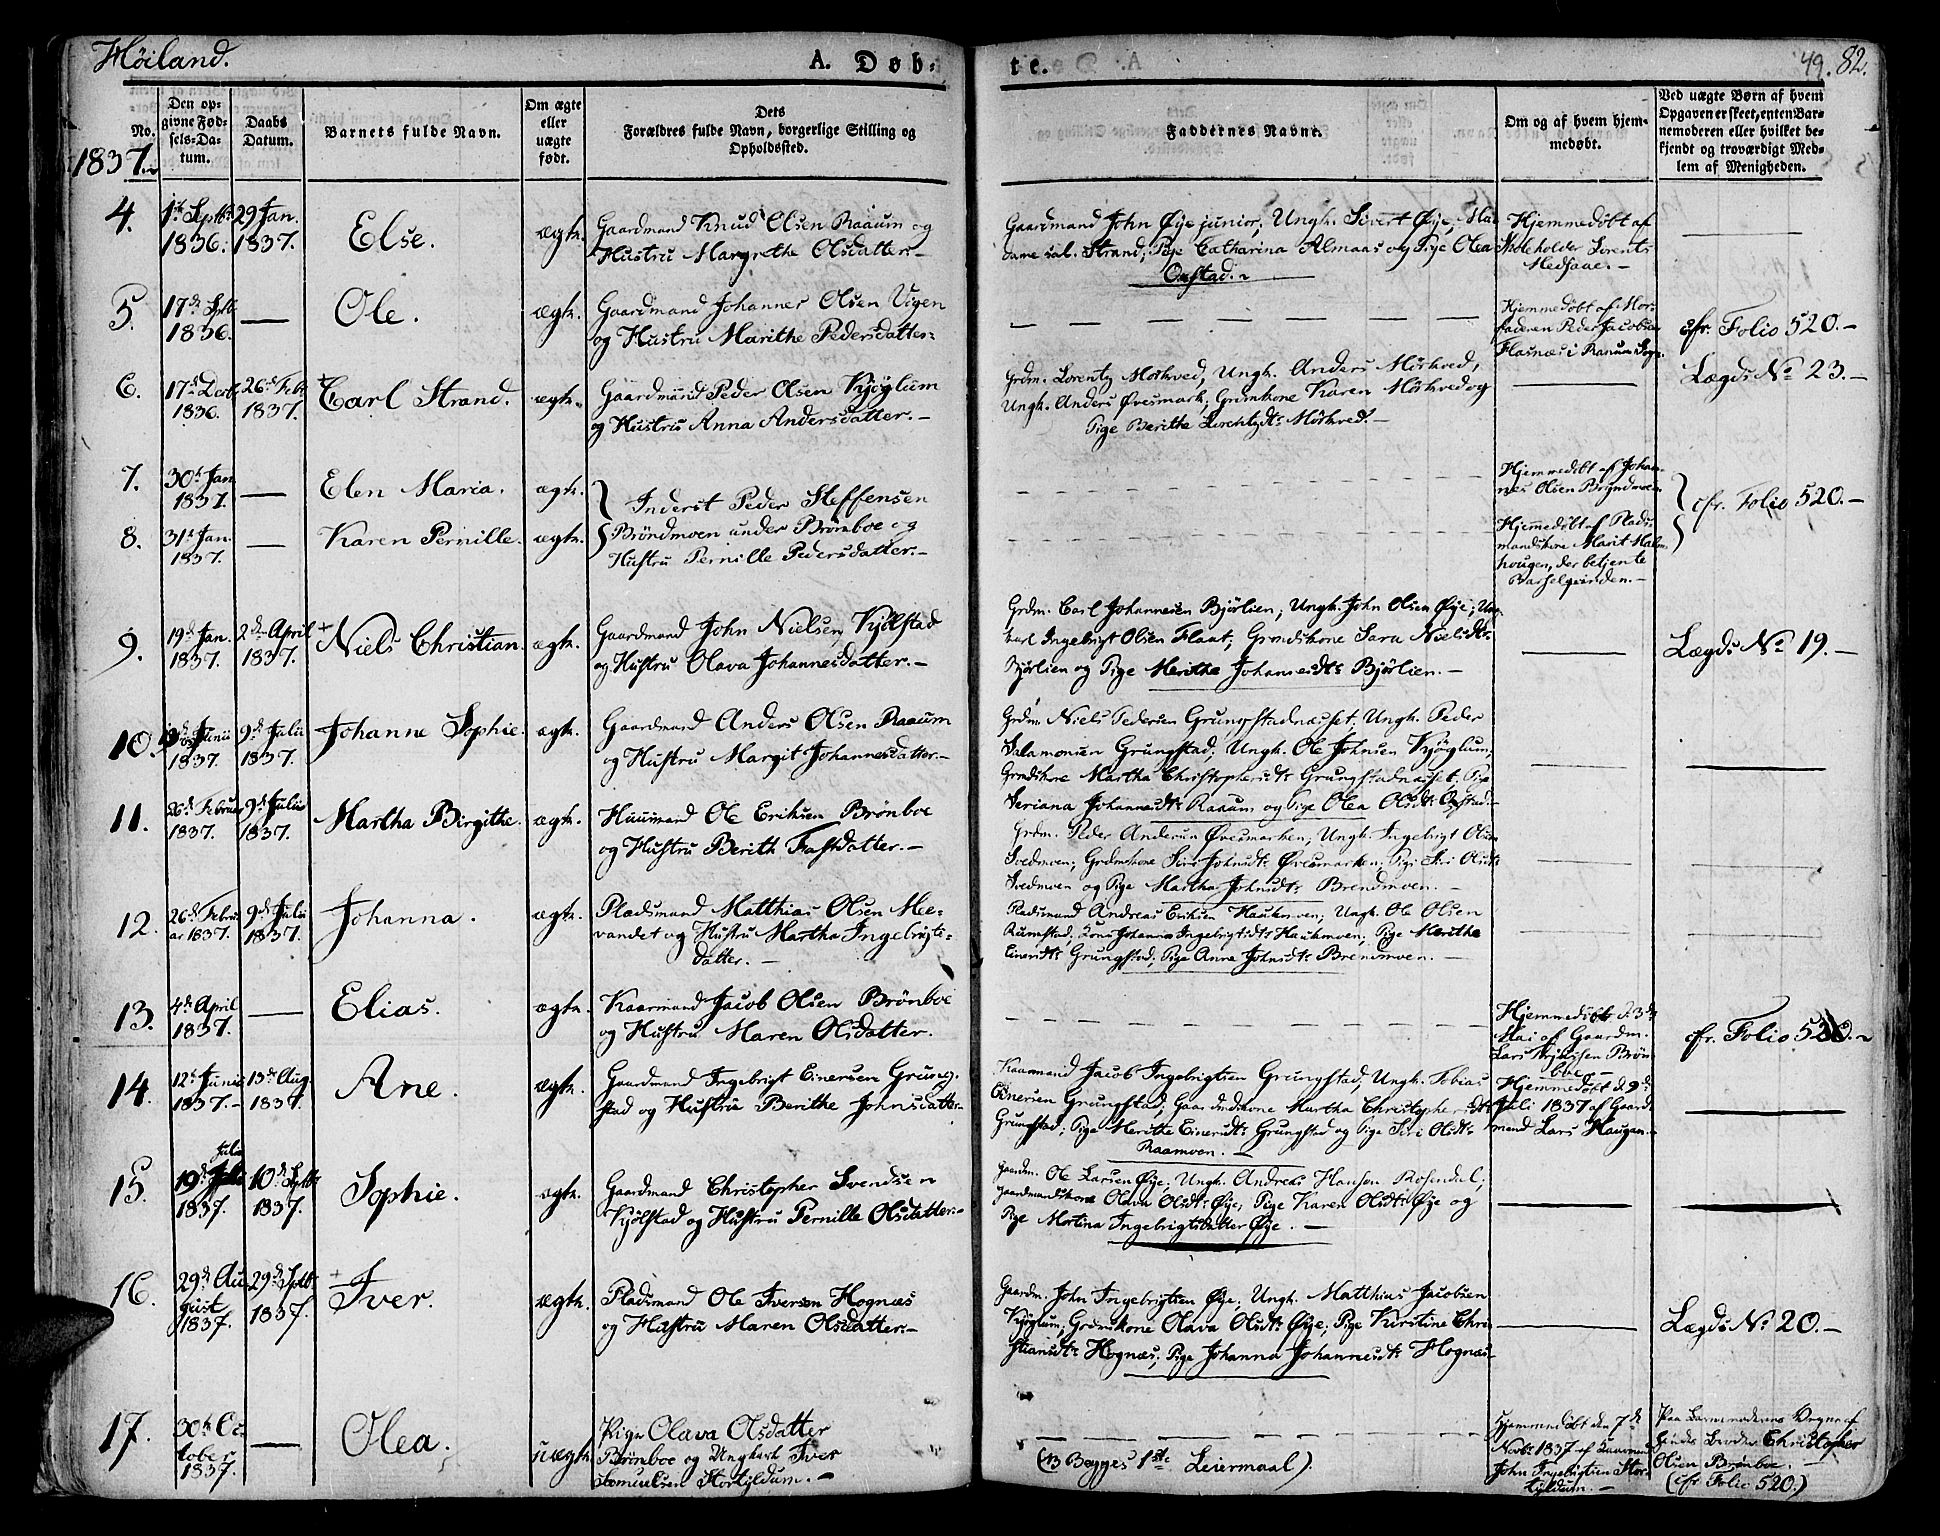 Höiland.
A. Döb-
te.
49. 82.
No.
Den op-
givne Fød-
sels-Da-
tum.
Daabs
Datum.
Barnets fulde Navn.
Om ægte
eller
uægte
født.
Dets
Forældres fulde Navn, borgerlige Stilling og
Opholdssted.
Faddernes Navne.
Om og af hvem hjem-
medøbt.
Ved uægte Børn af hvem
Opgaven er skeet, enten Bar-
nemoderen eller hvilket be-
kjendt og troværdigt Med-
lem af Menigheden.
1837.
4.
1ste Septbr
1836.
29 Jan.
1837.
Else.
ægte.
Gaardmand Knud Olsen Raaum og
Hustru Margrethe Olsdatter.-
Gaardmand John Øye junior, Ungk. Sivert Øye, Ma-
dame sal. Strand; Pige Catharina Almaas og Pige Olea
Onstad.
Hjemmedøbt af
Skoleholder Lorents
Medjaae.-
5.
17de Septb.
1836.
Ole.
ægte.
Gaardmand Johannes Olsen Vigen
og Hustru Marithe Pedersdatter.
Hjemmedøbt af Mor-
faderen Peder Jacobsen
Flasnæs i Ranum Sogn.
cfr. Folio 520.-
6.
17de Decbr
1836.
26de Febr
1837.
+
Carl Strand.
ægte.
Gaardmand Peder Olsen Kjøglum
og Hustru Anna Andersdatter.-
Grdm. Lorentz Mörkved, Ungk. Anders Mörkved,
Ungk. Anders Øvesmark; Grdmkone Karen Mörkved og
Pige Berithe Lorentzdtr Mörkved.-
Lægds No 23.-
7.
30te Jan.
1837.
Elen Maria.
ægte.
Inderst Peder Steffensen
8.
31te Jan.
1837.
Karen Pernille.
ægte.
Bröndmoen under Brönboe og
Hustru Pernille Pedersdatter.-
Hjemmedøbt af Johan-
nes Olsen Bröndmoen.
Hjemmedøbt af Plads-
mandskone Marit Halm-
hougen, der betjente
Barselqvinden.-
cfr. Folio 520.-
9.
19de Jan.
1837.
2den April
1837.
+
Niels Christian.
ægte.
Gaardmand John Nielsen Kjölstad
og Hustru Olava Johannesdatter.-
Grdm. Carl Johannesen Bjørlien; Ungk. John Olsen Øye; Ung-
karl Ingebrigt Olsen Flaat; Grmdskone Sara Nielsdtr
Bjørlien og Pige Merithe Johannesdtr Bjørlien.-
Lægds No 19.-
10.
Junii
1837.
9de Julii
1837.
Johanne Sophie.
ægte.
Gaardmand Anders Olsen Raaum
og Hustru Margit Johannesdatter.-
Grdm. Niels Pedersen Grungstadnæsset. Ungk. Peder
Salamonsen Grungstad, Ungk. Ole Johnsen Kjøglum;
Grmdskone Martha Christophersdtr Grungstadnæsset, Pige
Seriana Johannesdtr Raaum og Pige Olea Olsdtr Opstad.-
11.
26de Februar
1837.
9de Julii
1837.
Martha Birgithe.
ægte.
Huusmand Ole Eriksen Brönboe
og Hustru Berith Fastdatter.-
Grdm. Peder Andersen Øvesmarken; Ungk. Ingebrigt Olsen
Svedmoen; Grdmskone Siri Johnsdtr Øvesmarken, Pige Siri Olsdtr
Svedmoen og Pige Martha Johnsdtr Brendmoen.-
12.
26de Febru-
ar 1837.
9de Julii
1837.
Johanna.
ægte.
Pladsmand Matthias Olsen Mee-
vandet og Hustru Martha Ingebrigts-
datter.-
Pladsmand Andreas Eriksen Haukmoen; Ungk. Ole Olsen
Rumstad; Kone Johanna Ingebrigtsdtr Haukmoen; Pige Merithe
Einersdtr Grungstad, Pige Anne Johnsdtr Brendmoen.-
13.
4de April
1837.
Elias.
ægte.
Kaarmand Jacob Olsen Brönboe
og Hustru Maren Olsdatter.
Hjemmedøbt d. 3de
Mai af Gaardm.
Lars Brön-
boe.-
cfr. Folio
14.
12te Junii
1837.-
13de Aug.
1837.
Ane.
ægte.
Gaardmand Ingebrigt Einersen Grung-
stad og Hustru Berithe Johnsdatter.
Kaarmand Jacob Ingebrigtsen Grungstad; Ungk. Tobias
Einersen Grungstad; Gaardmdskone Martha Christophersdtr
Grungstad; Pige Merithe Einersdtr Grungstad og Pige Siri Olsdtr
Raamoen.-
Hjemmedøbt d. 9de
Juli 1837 af Gaard-
mand Lars Haugan.-
15.
Julii
19de Juli
1837.
10de Septb.
1837.
Sophie.
ægte.
Gaardmand Christopher Svendsen
Kjölstad og Hustru Pernille Olsdatter.-
Gaardm. Ole Larsen Øye; Ungk. Andreas Hansen Rosendal;
Gaardmandskone Olava Olsdtr Øye, Pige Karen Olsdtr Øye og
Pige Martina Ingebrigtsdatter Øye.-
16.
29de Au-
gust
1837.
29de Septb.
1837.
+
Iver.
ægte.
Pladsmand Ole Iversen Hognæs
og Hustru Maren Olsdatter.-
Gaardm. John Ingebrigtsen Øye; Ungk. Matthias Jacobsen
Kjøglum, Grdmskone Olava Olsdtr Øye; Pige Kirstine Chri-
stiansdtr Hognæs; Pige Johanna Johannesdtr Hognæs.
Lægds No 20.-
17.
30te Oc-
tober
1837.
Olea.
uægte.
Pige Olava Olsdatter
Brönboe og Ungkarl Iver
Samuelsen Stortyldum.-
(NB Begges 1ste Leiermaal).
Hjemmedøbt den 7de
Novbr 1837 af Kaarmand
John Ingebrigtsen Stor-
tyldum.-
Paa Barnemoderens Vegne af
hendes broder Christopher
Olsen Brönboe.
(cfr. Folio 520.)